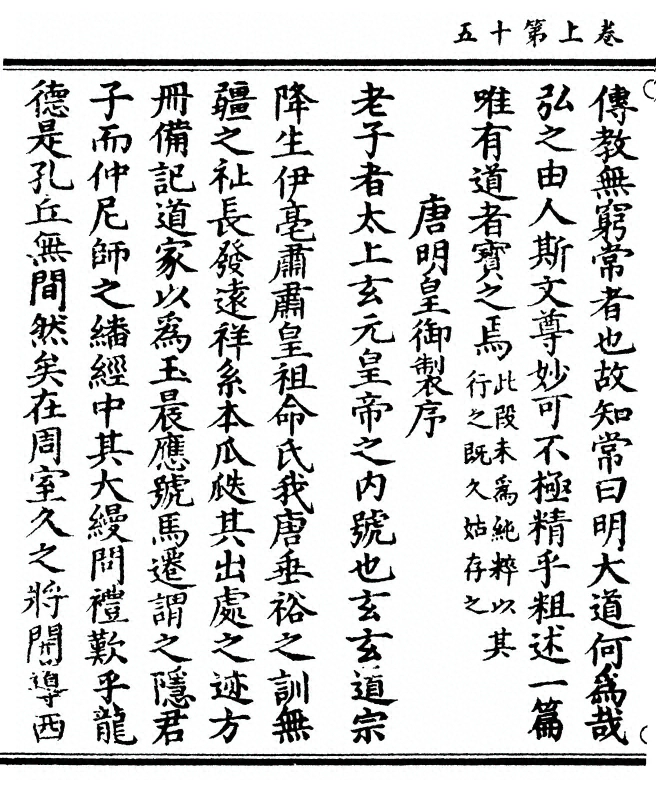 卷上第十五
傳教無窮常者也故知常曰明大道何為哉
弘之由人斯文尊妙可不極精乎粗述一篇
唯有道者寶之焉此段未為純粹以其行之既久姑存之
唐明皇御製序
老子者太上玄元皇帝之內號也玄玄道宗
降生伊亳肅肅皇祖命氏我唐垂裕之訓無
疆之祉長發遠祥系本瓜瓞其出處之迹方
冊備記道家以為玉晨應號馬遷謂之隱君
子而仲尼師之繙經中其大縵問禮歎乎龍
德是孔丘無間然矣在周室久之將開導西